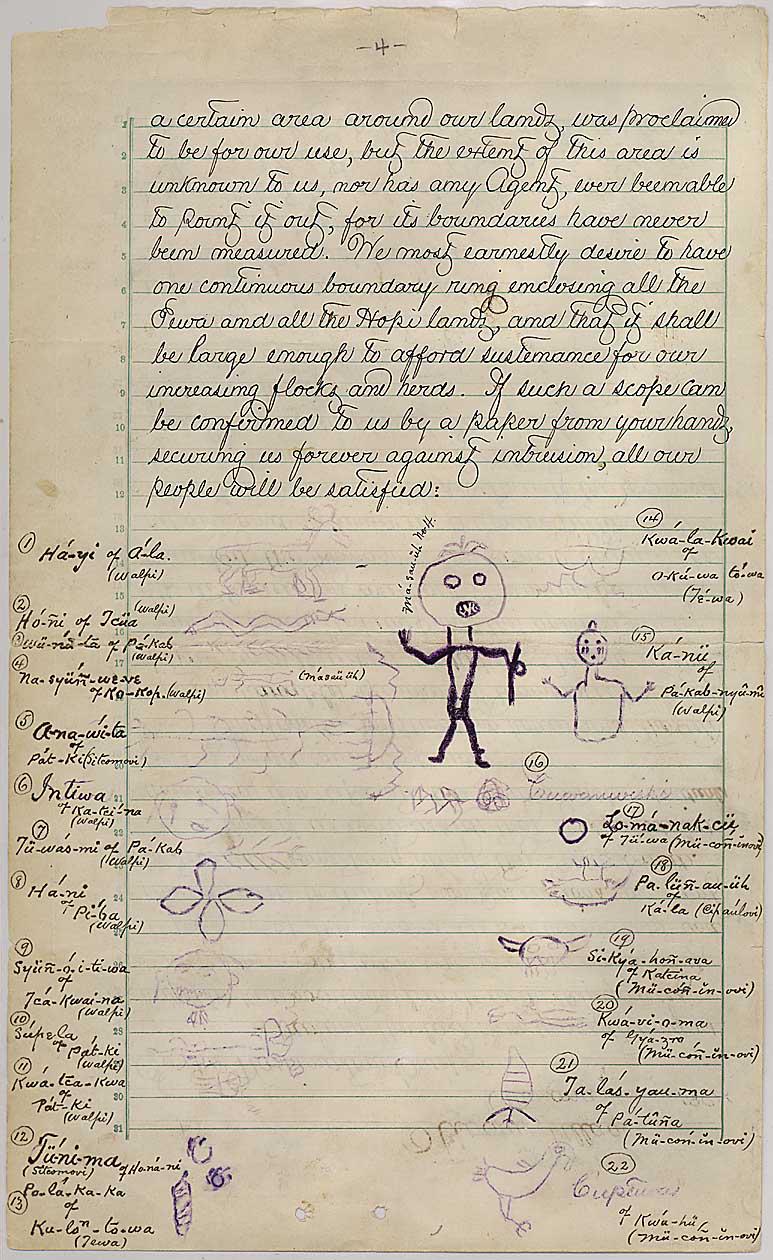 -4-
a certain area around our lands, was proclaimed
to be for our use, but the extent of this area is
unknown to us, nor has any Agent, ever been able
to point it out, for its boundaries have never
been measured. We most earnestly desire to have
one continuous boundary ring enclosing all the
Tewa and all the Hopi lands, and that it shall
be large enough to afford sustenance for our
increasing flocks and herds. If such a scope can
be confirmed to us by a paper from your hands,
securing us forever against intrusion, all our
people will be satisfied:
1 Há-yi of Á-la.
(Walpi)
2 (Walpi)
Hó-ñi of Tcüa
3 of Pá-kab
(Walpi)
4
Na-syüñ-we-ve
of Ko-kop. (Walpi)
(Másaüüh)
5
A-na-wi-ta
of
Pát-ki (Sitcomovi)
6 Intiwa
of Ka-tci-na
(Walpi)
7
Tü-wás-mi of Pá-kab
(Walpi)
8
Há-ni
of Pi-ba
(Walpi)
9
Syüñ-ó-i-ti-wa
of
Tcá-kwai-na
(Walpi)
10
Súpe-la
of Pát-ki
(Walpi)
11
Kwá-tca-kwa
of
Pát-ki
(Walpi)
12
Tü-ni-ma
(Sitcomovi) of Ho-ná-ni
13 Po-lá-ka-ka
of
Ku-lon-to-wa
(Tewa)
14
Kwá-la-kwai
of
O-kú-wa tó-wa
(Té-wa)
15
Ká-nü
of
Pá-kab-nyû-mû
(Walpi)
16
17
Lo-má-nak-cü
of Tü-wa (Mü-coñ-inovi)
18
Pa-lüñ-au-üh
of
Ká-la (Cipaúlovi)
19
Si-kyá-hoñ-ava
of Katcina
(Mü-cóñ-in-ovi)
20
Kwá-vi-o-ma
of
(Mü-cóñ-in-ovi)
21
Ta-lás-yau-ma
of
Pá-tüña
(Mü-coñ-in-ovi)
22
of Kwá-hü
(Mü-coñ-in-ovi)